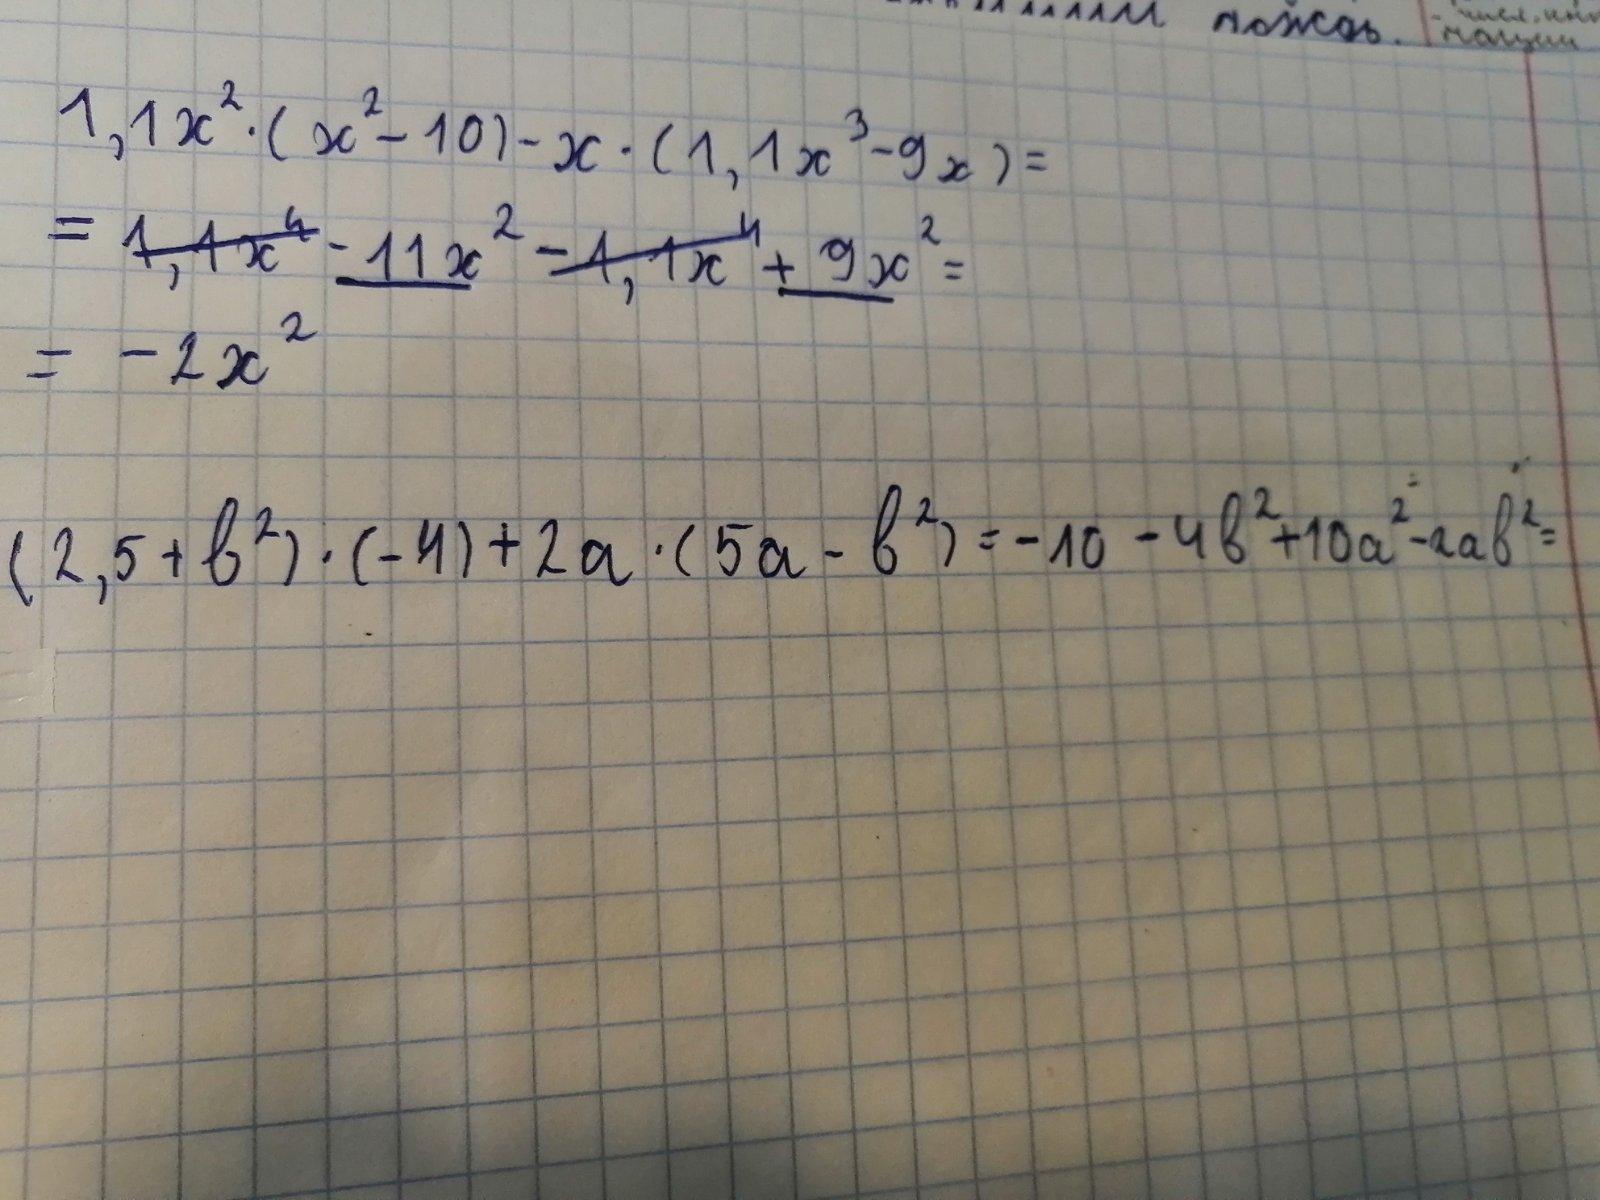 пождь.
1,1x²·(x²-10)-x·(1,1x³-9x)=
=1,1x⁴-11x²-1,1x⁴+9x²=
=-2x²
(2,5+b²)·(-4)+2a·(5a-b²)=-10-4b²+10a²-2ab²=